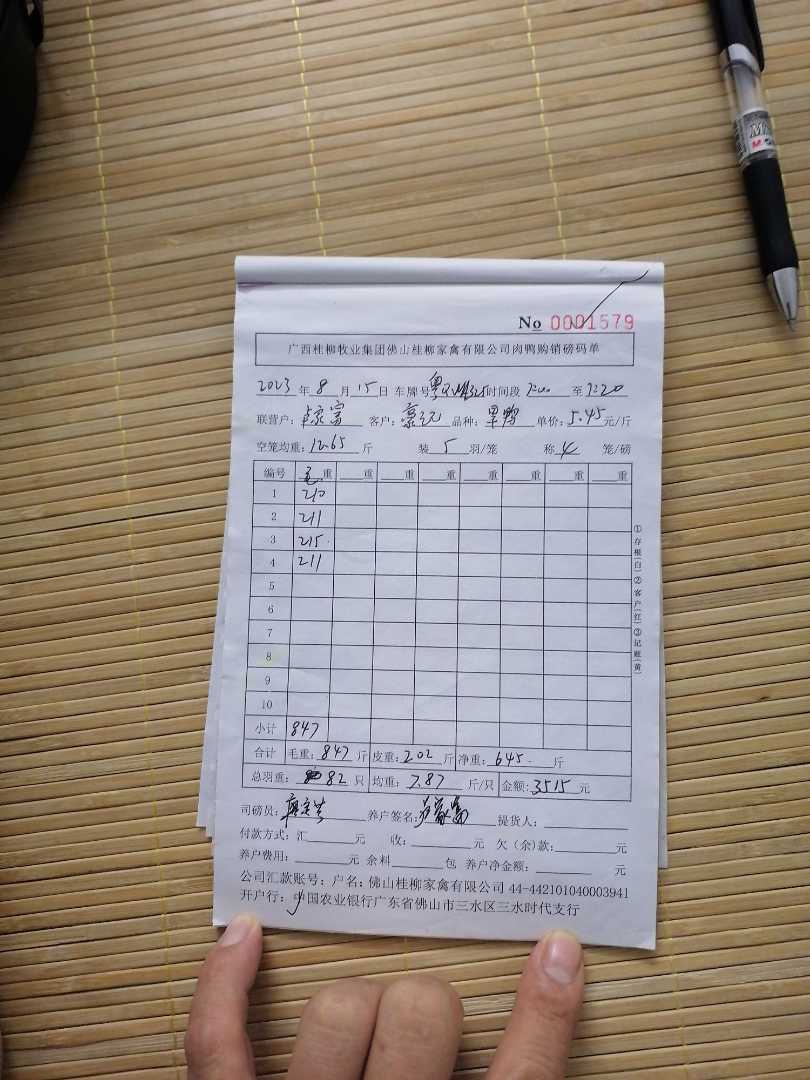 No 0001579
广西桂柳牧业集团佛山桂柳家禽有限公司肉鸭购销磅码单
2023 年 8 月 15 日 车牌号 粤 时间段 7:00 至 7:20
联营户: 富 客户: 品种: 单价: 5.45 元/斤
空笼均重: 12.65 斤 装 5 羽/笼 称 4 笼/磅
编号 毛重 重 重 重 重 重 重 重
1 210
2 211
3 215
4 211
5
6
7
8
9
10
小计 847
合计 毛重: 847 斤 皮重: 202 斤 净重: 645 斤
总羽重: 82 只 均重: 7.87 斤/只 金额: 3515 元
司磅员: 养户签名: 提货人:
付款方式: 汇 元 收: 元 欠(余)款: 元
养户费用: 元 余料 包 养户净金额: 元
公司汇款账号: 户名: 佛山桂柳家禽有限公司 44-442101040003941
开户行: 中国农业银行广东省佛山市三水区三水时代支行
①存根(白)②客户(红)③记账(黄)
M